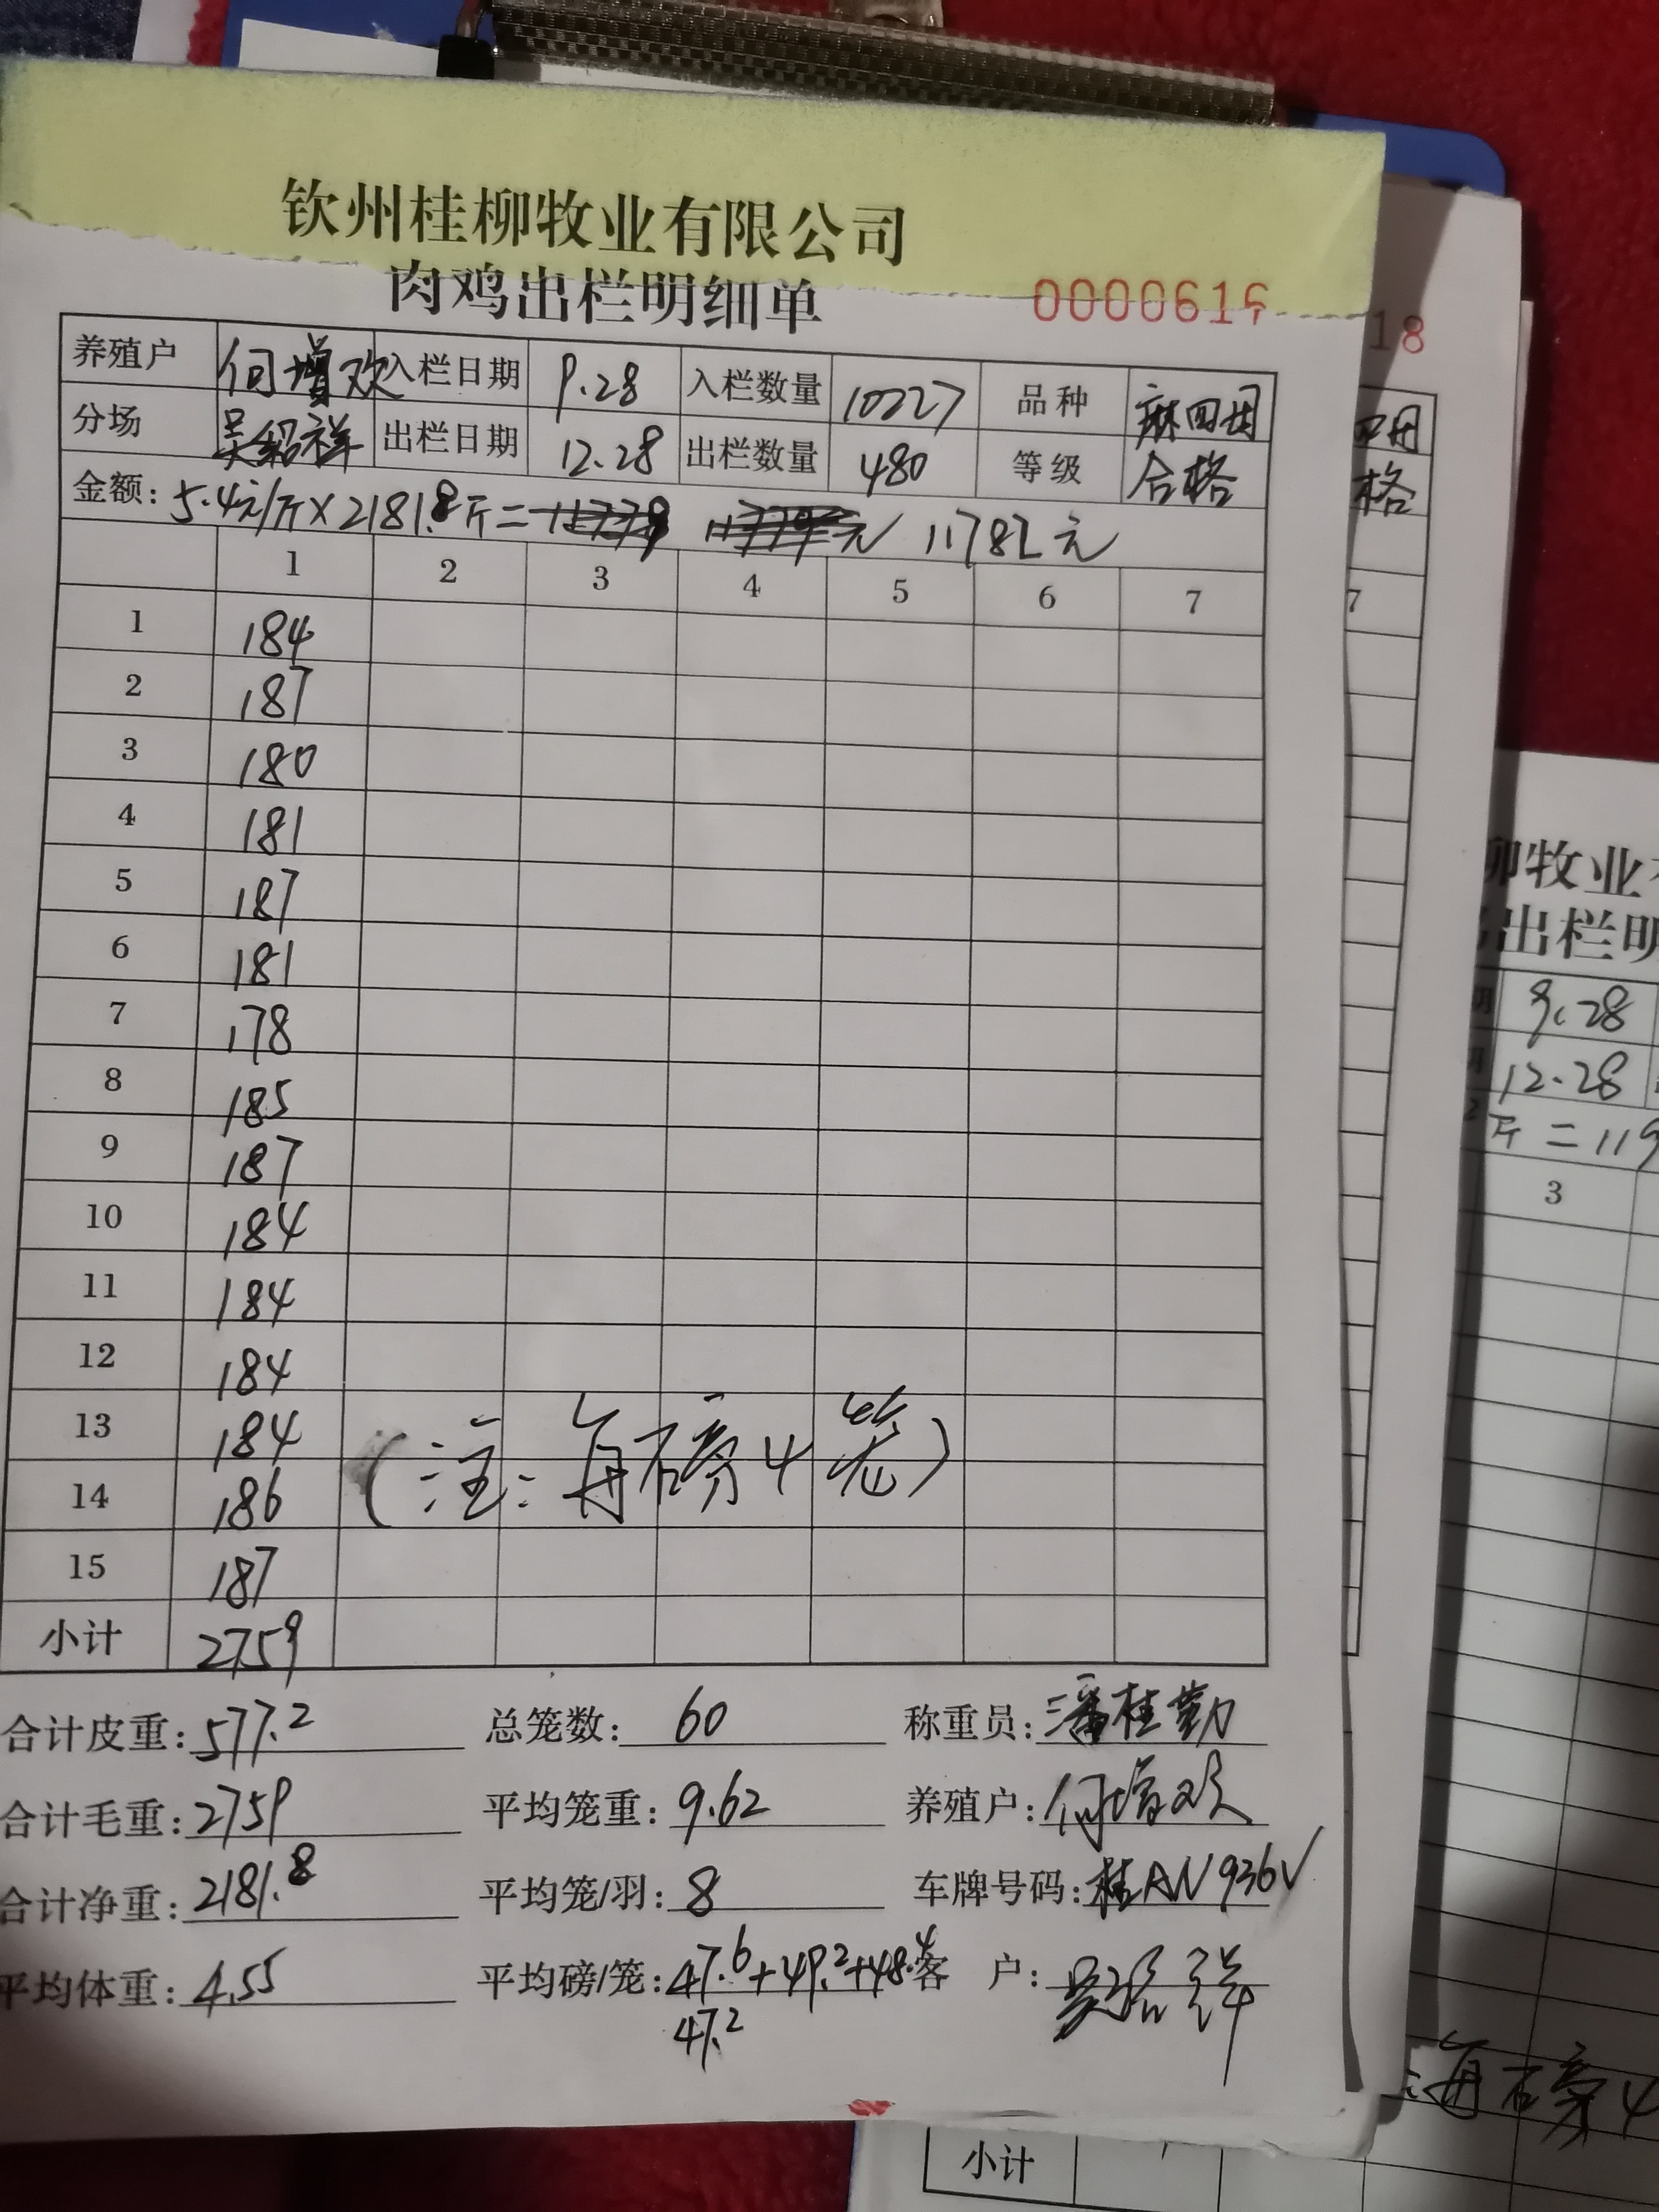 钦州桂柳牧业有限公司
肉鸡出栏明细单 000061
养殖户 何增欢 入栏日期 9.28 入栏数量 10227 品种
分场 吴绍祥 出栏日期 12.28 出栏数量 480 等级 合格
金额: 5.4元/斤×2181.8斤= 元 11782元
1 2 3 4 5 6 7
1 184
2 187
3 180
4 181
5 187
6 181
7 178
8 185
9 187
10 184
11 184
12 184
13 184
14 186
(注:每磅4笼)
15 187
小计 2759
合计皮重: 577.2 总笼数: 60 称重员: 潘桂勤
合计毛重: 2759 平均笼重: 9.62 养殖户: 何增欢
合计净重: 2181.8 平均笼/羽: 8 车牌号码: 桂AN936V
平均体重: 4.55 平均磅/笼: 47.6+49.2+48.4 客 户: 吴绍祥
47.2
18
格
7
柳牧业
出栏明
9.28
12.28
斤=119
3
每磅4
小计